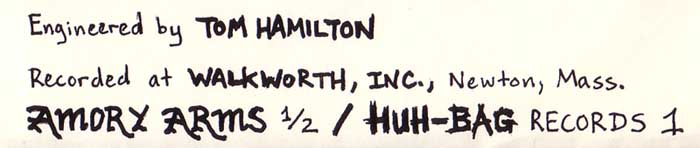 Engineered by TOM HAMILTON
Recorded at WALKWORTH, INC., Newton, Mass.
AMORY ARMS 1/2 / HUH-BAG RECORDS 1